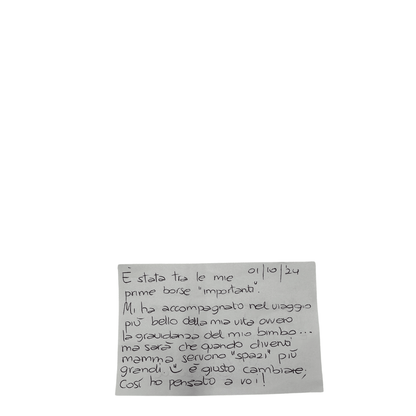 È stata tra le mie 01/10/24
prime borse "importanti".
Mi ha accompagnato nel viaggio
più bello della mia vita ovvero
la gravidanza del mio bimbo...
ma sarà che quando diventi
mamma servono "spazi" più
grandi è giusto cambiare,
Così ho pensato a voi!